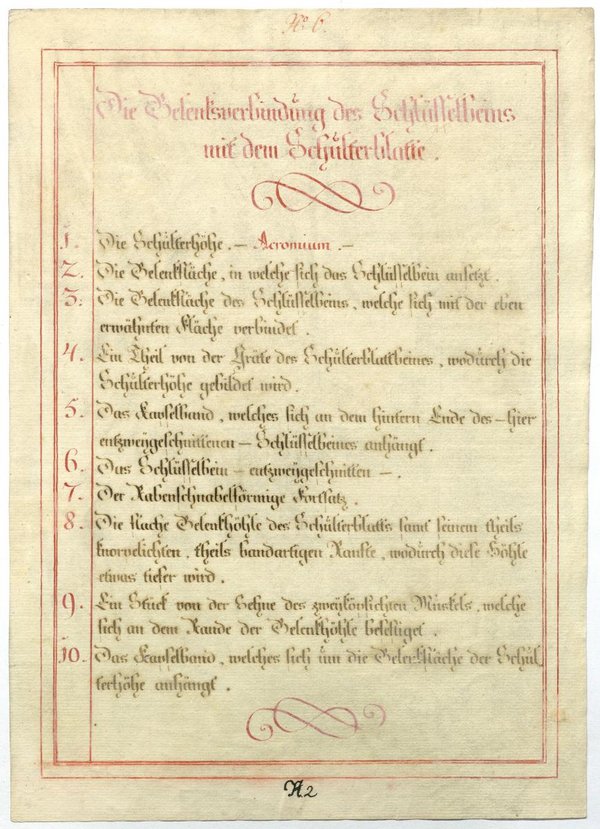 No. 6.
Die Gelenksverbindung des Schlüsselbeins
mit dem Schulterblatte.
1. Die Schulterhöhe. — Acromium. —
2. Die Gelenkfläche, in welche sich das Schlüsselbein ansetzt.
3. Die Gelenkfläche des Schlüsselbeins, welche sich mit der eben
erwähnten Fläche verbindet.
4. Ein Theil von der Gräte des Schulterblattbeines, wodurch die
Schulterhöhe gebildet wird.
5. Das Kapselband, welches sich an dem hintern Ende des — hier
entzweygeschnittenen — Schlüsselbeines anhängt.
6. Das Schlüsselbein — entzweygeschnitten —.
7. Der Rabenschnabelförmige Fortsatz.
8. Die flache Gelenkhöhle des Schulterblatts samt seinem theils
knorpelichten, theils bandartigen Ranfte, wodurch diese Höhle
etwas tiefer wird.
9. Ein Stück von der Sehne des zweyköpfichten Muskels, welche
sich an dem Rande der Gelenkhöhle befestiget.
10. Das Kapselband, welches sich um die Gelenkfläche der Schul-
terhöhe anhängt.
N. 2